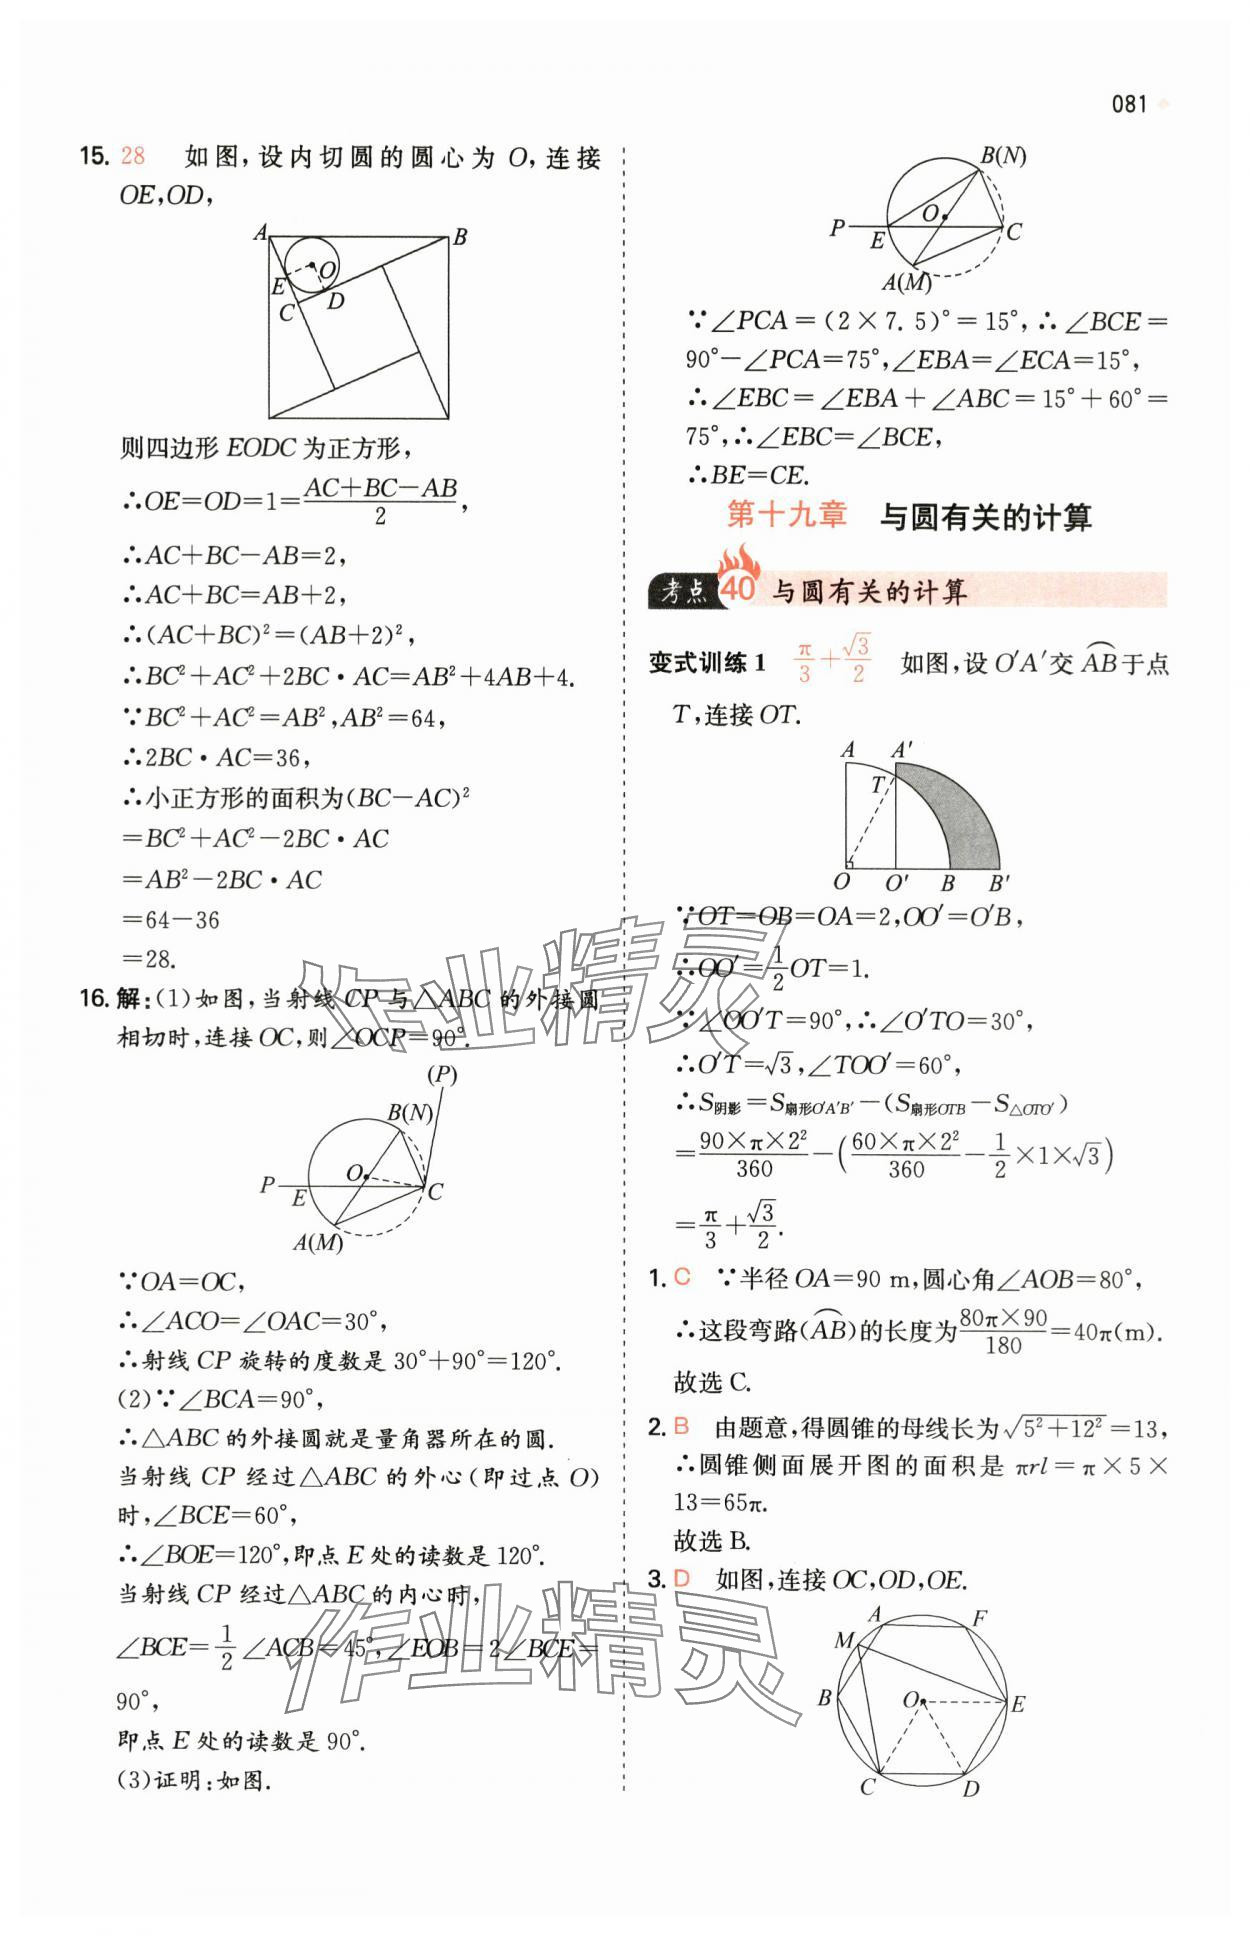 081
15. 28 如图,设内切圆的圆心为 O,连接
OE,OD,
A
B
E
O
C
D
则四边形 EODC 为正方形,
∴OE=OD=1=(AC+BC-AB)/2,
∴AC+BC-AB=2,
∴AC+BC=AB+2,
∴(AC+BC)²=(AB+2)²,
∴BC²+AC²+2BC·AC=AB²+4AB+4.
∵BC²+AC²=AB²,AB²=64,
∴2BC·AC=36,
∴小正方形的面积为(BC-AC)²
=BC²+AC²-2BC·AC
=AB²-2BC·AC
=64-36
=28.
16. 解:(1)如图,当射线 CP 与△ABC 的外接圆
相切时,连接 OC,则∠OCP=90°.
(P)
B(N)
O
P
E
C
A(M)
∵OA=OC,
∴∠ACO=∠OAC=30°,
∴射线 CP 旋转的度数是 30°+90°=120°.
(2)∵∠BCA=90°,
∴△ABC 的外接圆就是量角器所在的圆.
当射线 CP 经过△ABC 的外心(即过点 O)
时,∠BCE=60°,
∴∠BOE=120°,即点 E 处的读数是 120°.
当射线 CP 经过△ABC 的内心时,
∠BCE=1/2∠ACB=45°,∠EOB=2∠BCE=
90°,
即点 E 处的读数是 90°.
(3)证明:如图.
B(N)
O
P
E
C
A(M)
∵∠PCA=(2×7.5)°=15°,∴∠BCE=
90°-∠PCA=75°,∠EBA=∠ECA=15°,
∴∠EBC=∠EBA+∠ABC=15°+60°=
75°,∴∠EBC=∠BCE,
∴BE=CE.
第十九章 与圆有关的计算
考点 40 与圆有关的计算
变式训练1 π/3+√3/2 如图,设 O'A'交 ⌒AB于点
T,连接 OT.
A A'
T
O O' B B'
∵OT=OB=OA=2,OO'=O'B,
∴OO'=1/2OT=1.
∵∠OO'T=90°,∴∠O'TO=30°,
∴O'T=√3,∠TOO'=60°,
∴S阴影=S扇形O'A'B'-(S扇形OTB-S△OTO')
=(90×π×2²)/360-((60×π×2²)/360-1/2×1×√3)
=π/3+√3/2.
1. C ∵半径 OA=90 m,圆心角∠AOB=80°,
∴这段弯路(⌒AB)的长度为(80π×90)/180=40π(m).
故选 C.
2. B 由题意,得圆锥的母线长为√(5²+12²)=13,
∴圆锥侧面展开图的面积是 πrl=π×5×
13=65π.
故选 B.
3. D 如图,连接 OC,OD,OE.
A
F
M
B
O
E
C
D
作业精灵
作业精灵